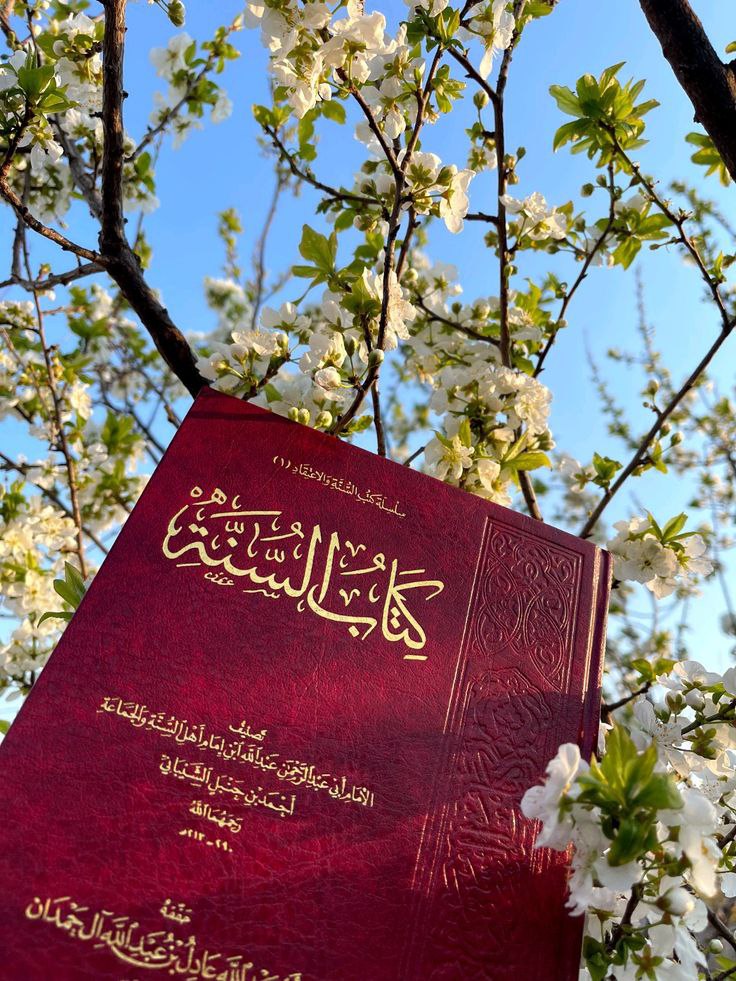 سلسلة كتب السُّنَّة والاعتقاد (١)
كِتَابُ السُّنَّةِ
تصنيف
الإمام أبي عبد الرحمن عبد الله ابن إمام أهل السُّنَّة والجماعة
أحمد بن حنبل الشيباني
رحمهما الله
٢١٣ - ٢٩٠هـ
حققه
عبد الله عادل بن عبد الله آل حمدان